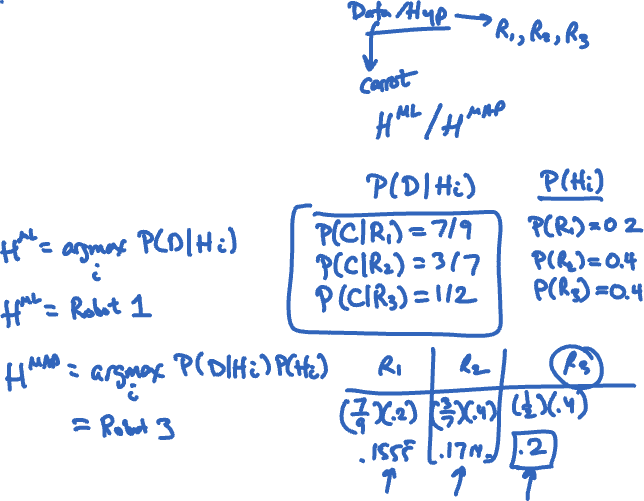 Data/Hyp → R₁, R₂, R₃
Carrot
H^ML / H^MAP
P(D|Hi)
P(Hi)
P(C|R₁) = 7/9
P(R₁) = 0.2
P(C|R₂) = 3/7
P(R₂) = 0.4
P(C|R₃) = 1/2
P(R₃) = 0.4
H^ML = argmax P(D|Hi)
i
H^ML = Robot 1
H^MAP = argmax P(D|Hi) P(Hi)
i
= Robot 3
R₁ R₂ R₃
(7/9)(.2) (3/7)(.4) (1/2)(.4)
.1555 .171 .2